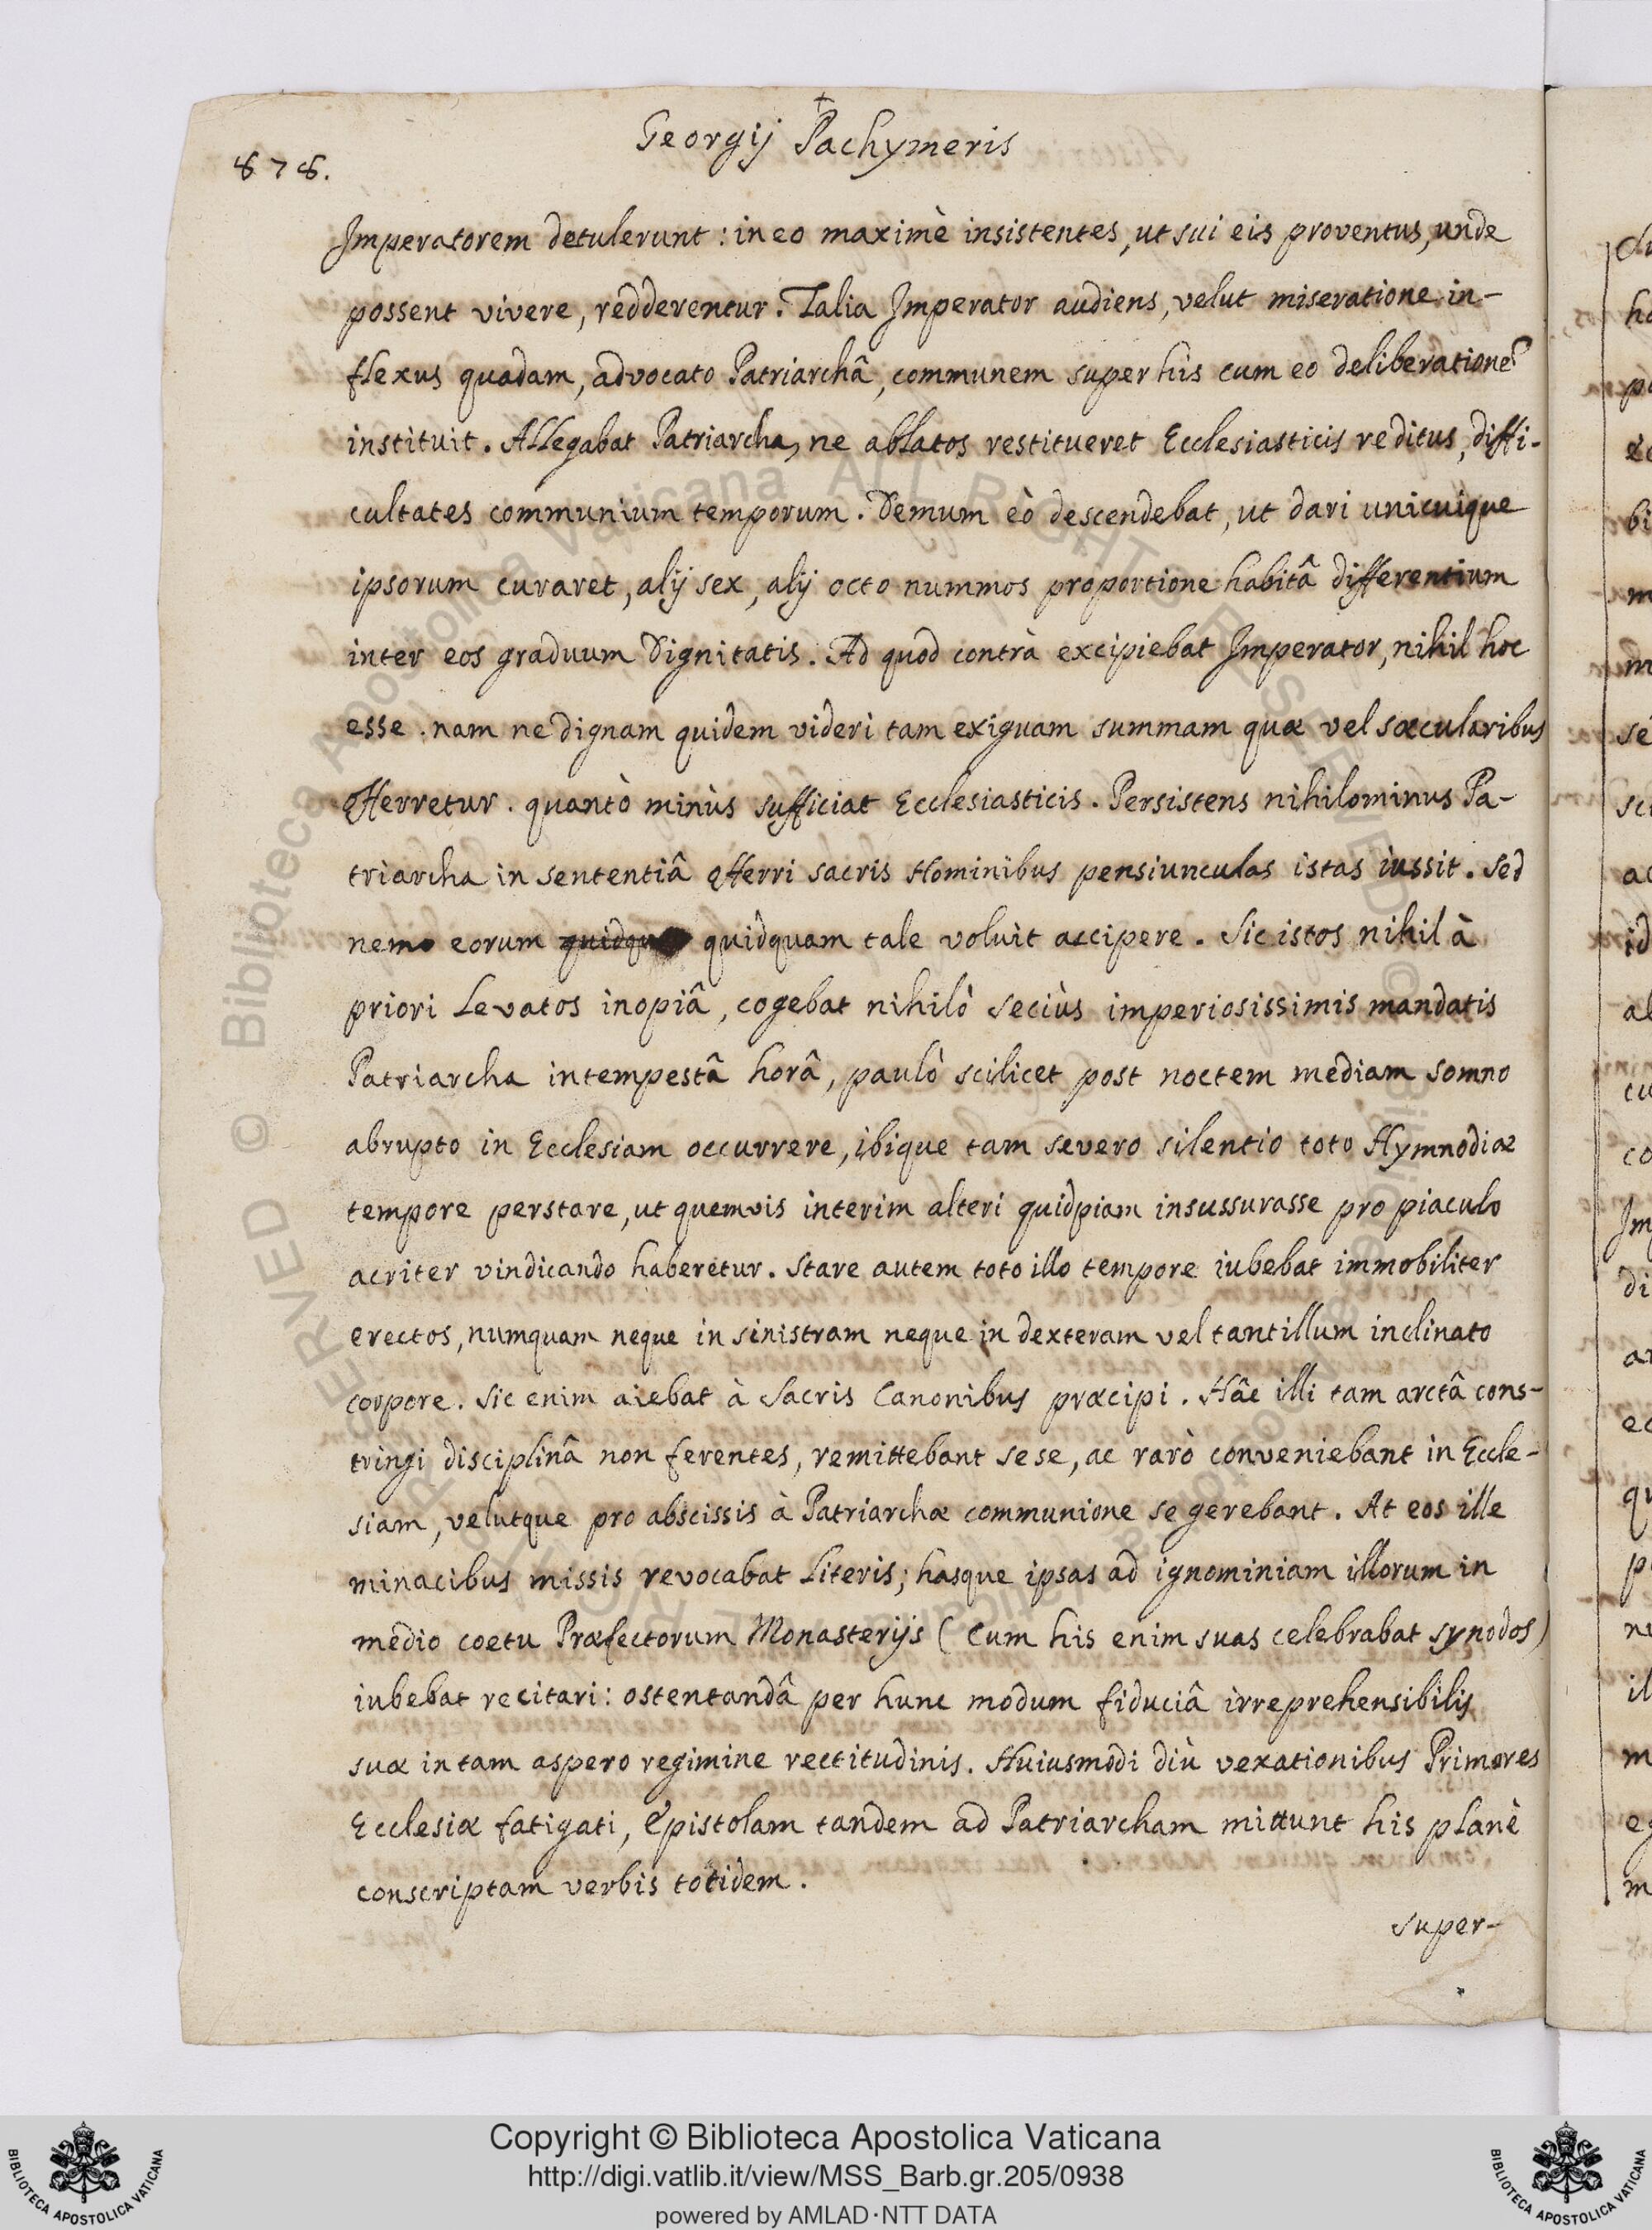 Georgij Pachymeris
878.
Imperatorem detulerunt: in eo maximè insistentes, ut sui eis proventus, unde
possent vivere, redderentur. Talia Imperator audiens, velut miseratione in-
flexus quadam, advocato Patriarchâ, communem super his cum eo deliberatione᷃
instituit. Allegabat Patriarcha, ne ablatos restitueret Ecclesiasticis reditus, diffi-
cultates communium temporum. Demum eò descendebat, ut dari unicuique
ipsorum curaret, alij sex, alij octo nummos proportione habitâ differentium
inter eos graduum Dignitatis. Ad quod contrà excipiebat Imperator, nihil hoc
esse. nam ne dignam quidem videri tam exiguam summam quæ vel sæcularibus
offerretur. quantò minùs sufficiat Ecclesiasticis. Persistens nihilominus Pa-
triarcha in sententiâ offerri sacris Hominibus pensiunculas istas iussit. Sed
nemo eorum quidquam tale voluit accipere. Sic istos nihil à
priori Levatos inopiâ, cogebat nihilò Seciùs imperiosissimis mandatis
Patriarcha intempestâ horâ, paulò scilicet post noctem mediam somno
abrupto in Ecclesiam occurrere, ibique tam severo silentio toto Hymnodiæ
tempore perstare, ut quemvis interim alteri quidpiam insussurasse pro piaculo
acriter vindicando haberetur. Stare autem toto illo tempore iubebat immobiliter
erectos, numquam neque in sinistram neque in dexteram vel tantillum inclinato
corpore. Sic enim aiebat à Sacris Canonibus præcipi. Hâc illi tam arctâ cons-
tringi disciplinâ non ferentes, remittebant sese, ac rarò conveniebant in Eccle-
siam, velutque pro abscissis à Patriarchæ communione se gerebant. At eos ille
minacibus missis revocabat Literis; hasque ipsas ad ignominiam illorum in
medio coetu Præfectorum Monasterijs (Cum his enim suas celebrabat synodos)
iubebat recitari: ostentandâ per hunc modum fiduciâ irreprehensibilis
suæ in tam aspero regimine rectitudinis. Huiusmodi diù vexationibus Primores
Ecclesiæ fatigati, Epistolam tandem ad Patriarcham mittunt his planè
conscriptam verbis totidem.
super-
Copyright © Biblioteca Apostolica Vaticana
http://digi.vatlib.it/view/MSS_Barb.gr.205/0938
powered by AMLAD·NTT DATA
BIBLIOTECA APOSTOLICA VATICANA
BIBLIOTECA APOSTOLICA VATICANA